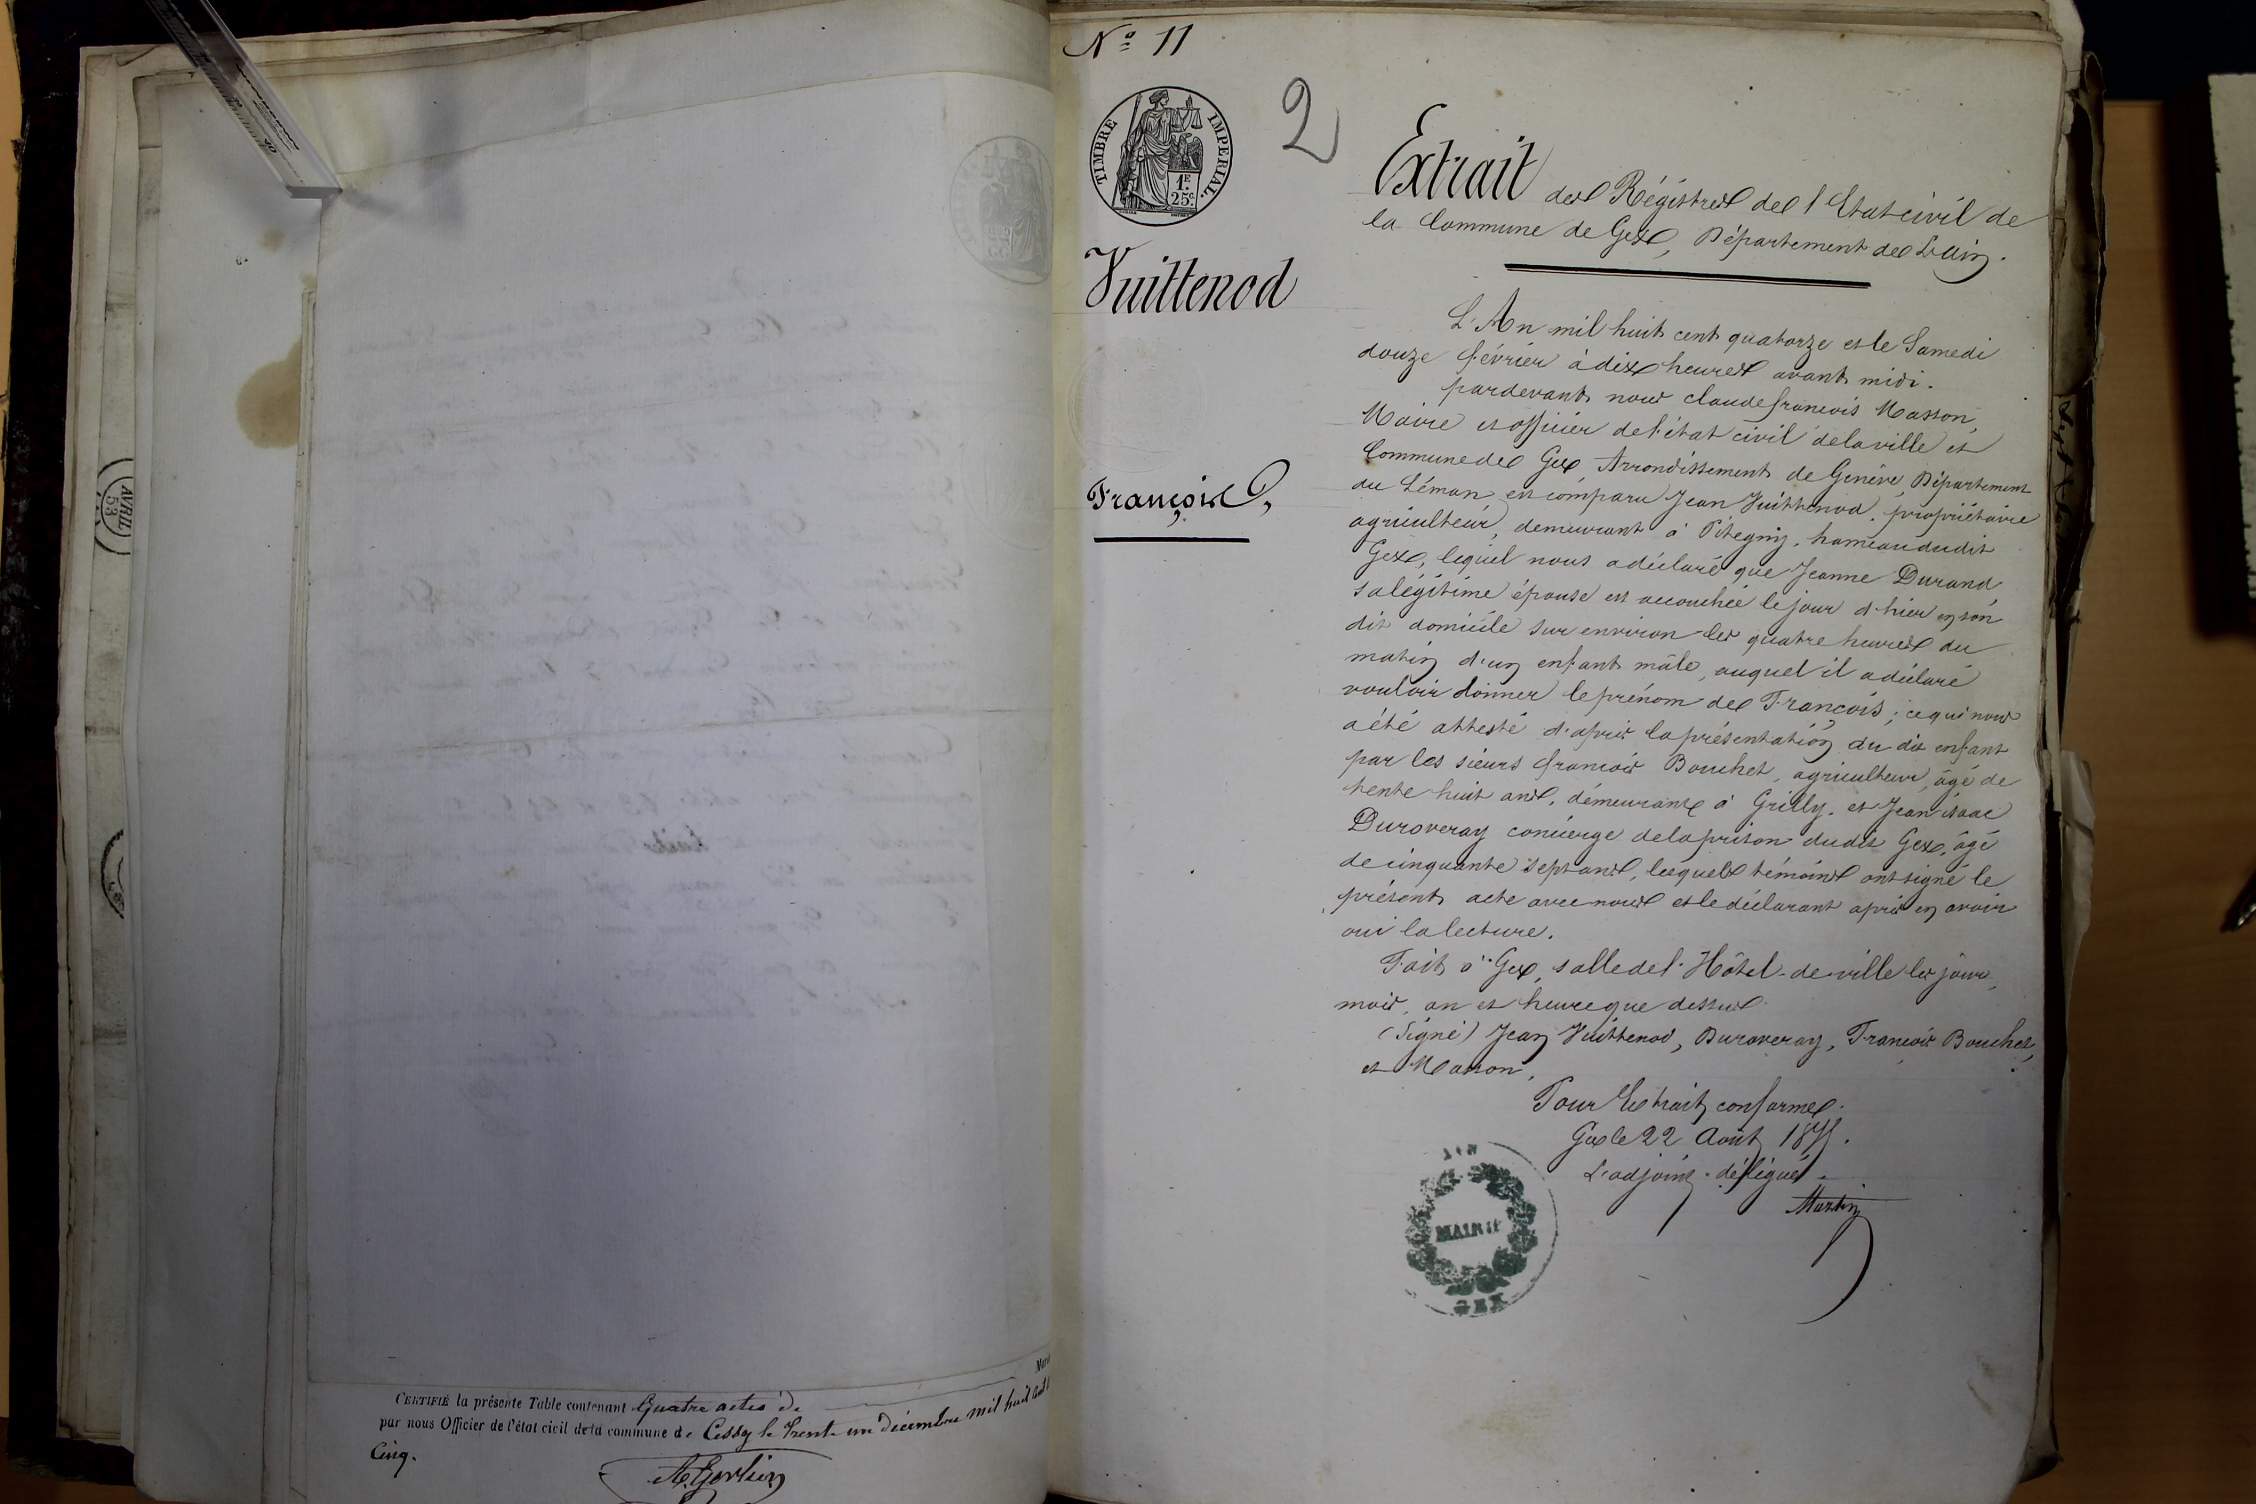 CERTIFIÉ la présente Table contenant Quatre actes de
par nous Officier de l'état civil de la commune de Cessy le trente un décembre mil huit cent
Cinq.
AVRIL
53
N° 11
2
TIMBRE IMPERIAL.
1F.
25c.
Vuittenod
François,
Extrait des Régistres de l'Etat civil de
la Commune de Gex, Département de L'ain.
L'An mil huit cent quatorze et le Samedi
douze février à dix heures avant midi.
pardevant nous claude francois Masson,
Maire et officier de l'état civil de la ville et
Commune de Gex Arrondissement de Genève Département
du Léman est comparu Jean Vuittenod, propriétaire
agriculteur, demeurant à Pitegny, hameau du dit
Gex, lequel nous a déclaré que Jeanne Durand
sa légitime épouse est accouchée le jour d'hier en son
dit domicile sur environ les quatre heures du
matin d'un enfant mâle, auquel il a déclaré
vouloir donner le prénom de François; ce qui nous
a été attesté d'après la présentation du dit enfant
par les sieurs francois Bouchet, agriculteur, âgé de
trente huit ans, démeurant à Grilly, et Jean isaac
Duroveray concierge de la prison du dit Gex, âgé
de cinquante sept ans, lesquels témoins ont signé le
présent acte avec nous et le déclarant après en avoir
oui la lecture.
Fait à Gex, salle de l'Hôtel-de-ville les jour,
mois, an et heure que dessus.
(Signé) Jean Vuittenod, Duroveray, François Bouchet,
et Masson,
Pour Extrait conforme.
Gex le 22 Août
L'adjoint-délégué
Martin
AIN
MAIRIE
GEX